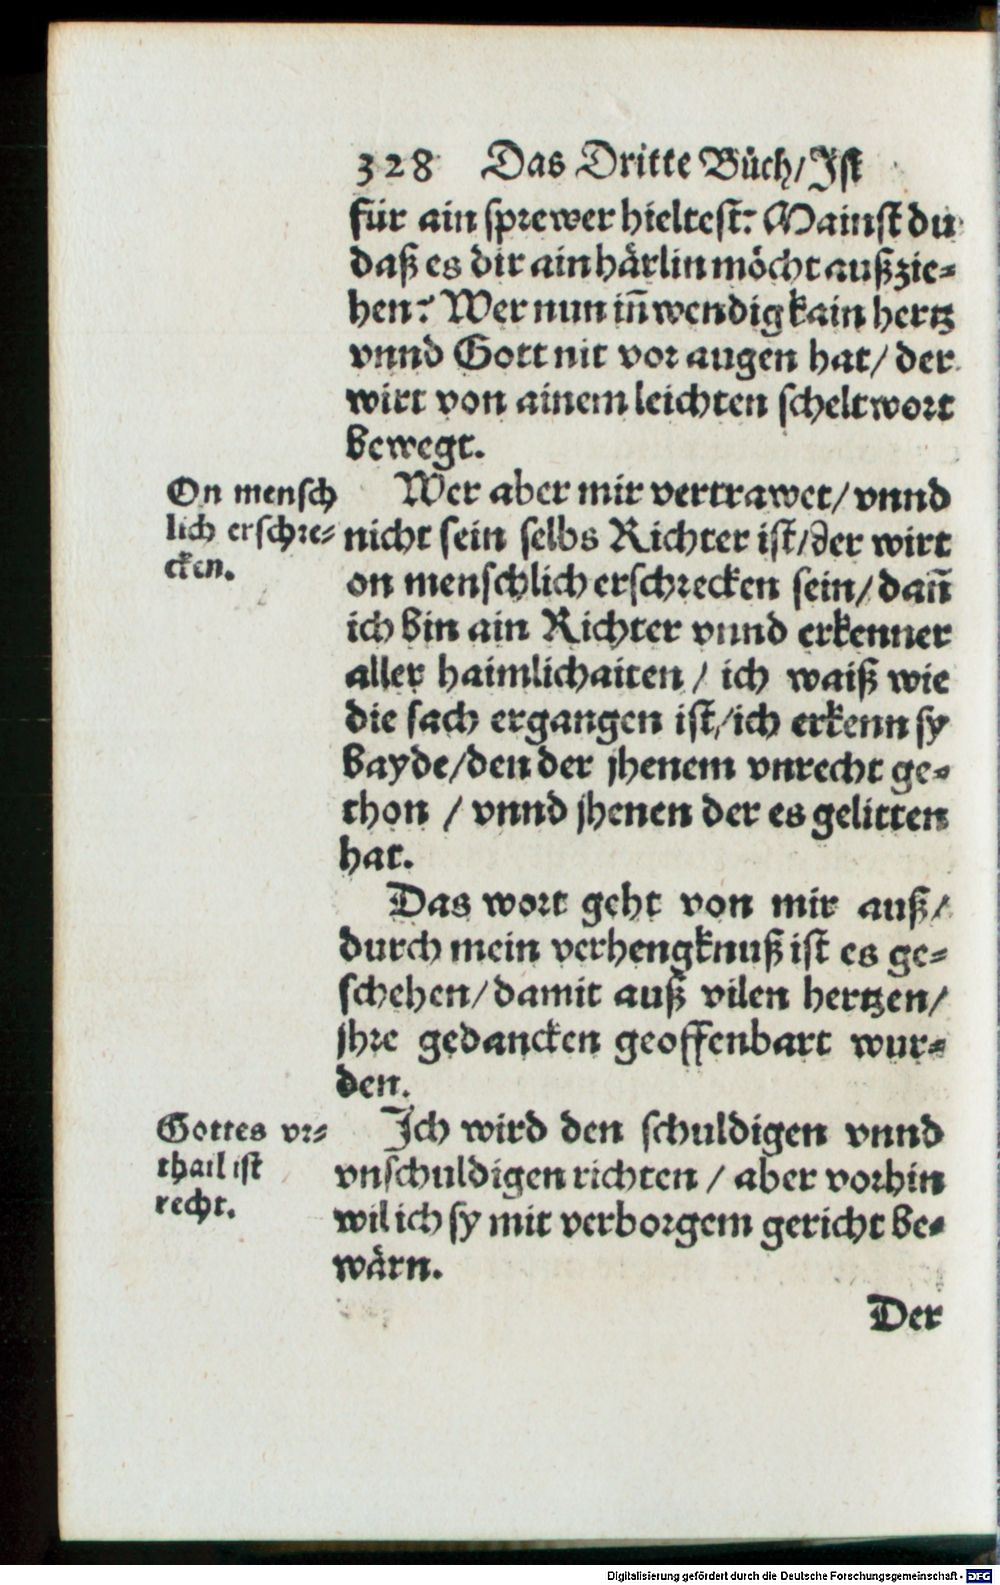 328 Das Dritte Büch/Ist
für ain sprewer hieltest? Mainst du
daß es dir ain härlin möcht außzie=
hen? Wer nun iñwendig kain hertz
vnnd Gott nit vor augen hat/ der
wirt von ainem leichten scheltwort
bewegt.
On mensch
lich erschre=
cken.
Wer aber mir vertrawet/ vnnd
nicht sein selbs Richter ist/der wirt
on menschlich erschrecken sein/ dañ
ich bin ain Richter vnnd erkenner
aller haimlichaiten / ich waiß wie
die sach ergangen ist/ich erkenn sy
bayde/den der jhenem vnrecht ge=
thon / vnnd jhenen der es gelitten
hat.
Das wort geht von mir auß/
durch mein verhengknuß ist es ge=
schehen/ damit auß vilen hertzen/
jhre gedancken geoffenbart wur=
den.
Gottes vr=
thail ist
recht.
Ich wird den schuldigen vnnd
vnschuldigen richten / aber vorhin
wil ich sy mit verborgem gericht be=
wärn.
Der
Digitalisierung gefördert durch die Deutsche Forschungsgemeinschaft - DFG